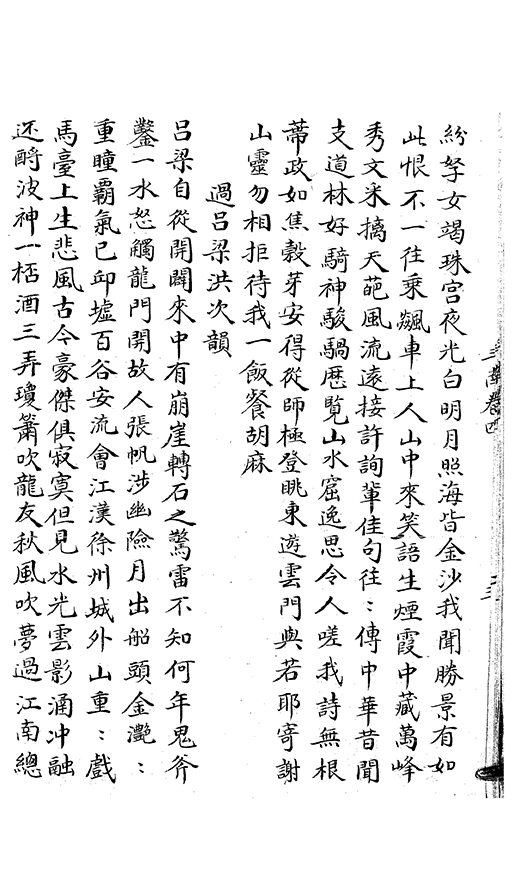 紛孥女竭珠宮夜光白明月照海皆金沙我聞勝景有如
此恨不一往乘飆車上人山中來笑語生煙霞中藏萬峰
秀文采摛天葩風流遠接許詢輩佳句往:傳中華昔聞
支道林好騎神駿騧歷覽山水窟逸思令人嗟我詩無根
蒂政如焦穀芽安得從師極登眺東遊雲門與若耶寄謝
山靈勿相拒待我一飯餐胡麻
過呂梁洪次韻
呂梁自從開闢來中有崩崖轉石之驚雷不知何年鬼斧
鑿一水怒觸龍門開故人張帆涉幽險月出船頭金灔:
重瞳霸氣已邱墟百谷安流會江漢徐州城外山重:戲
馬臺上生悲風古今豪傑俱寂寞但見水光雲影涵冲融
还酹波神一桮酒三弄瓊簫吹龍友秋風吹夢過江南總
卷四